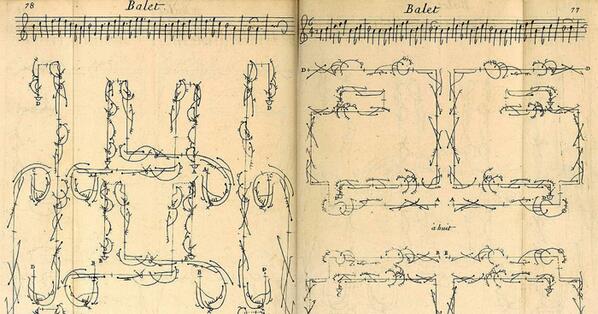 78
Balet
Balet
77
à huit